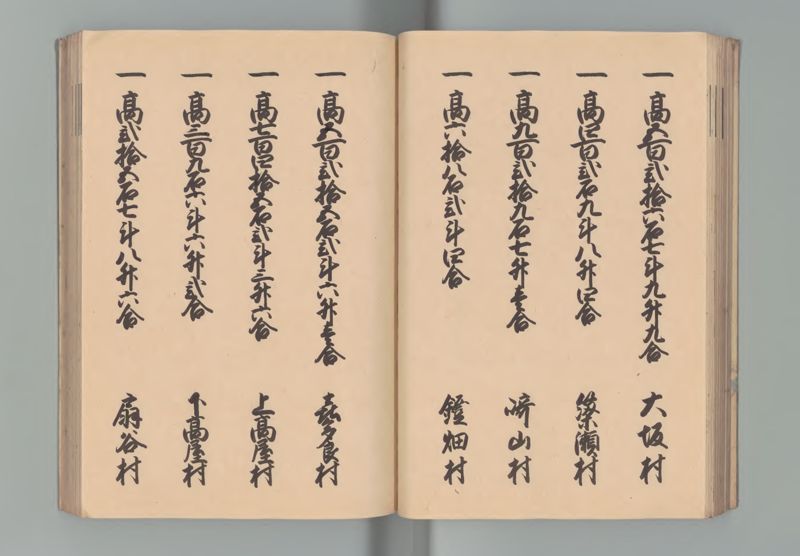 一 高五百弐拾六石七斗九升九合 大坂村
一 高四百弐石九斗八升四合 築瀬村
一 高九百弐拾九石七升壱合 崎山村
一 高六拾八石弐斗四合 鐙畑村
一 高五百弐拾五石弐斗六升壱合 喜多良村
一 高七百四拾五石弐斗三升六合 上高屋村
一 高三百九石六斗六升弐合 下高屋村
一 高弐拾五石七斗八升六合 扇谷村